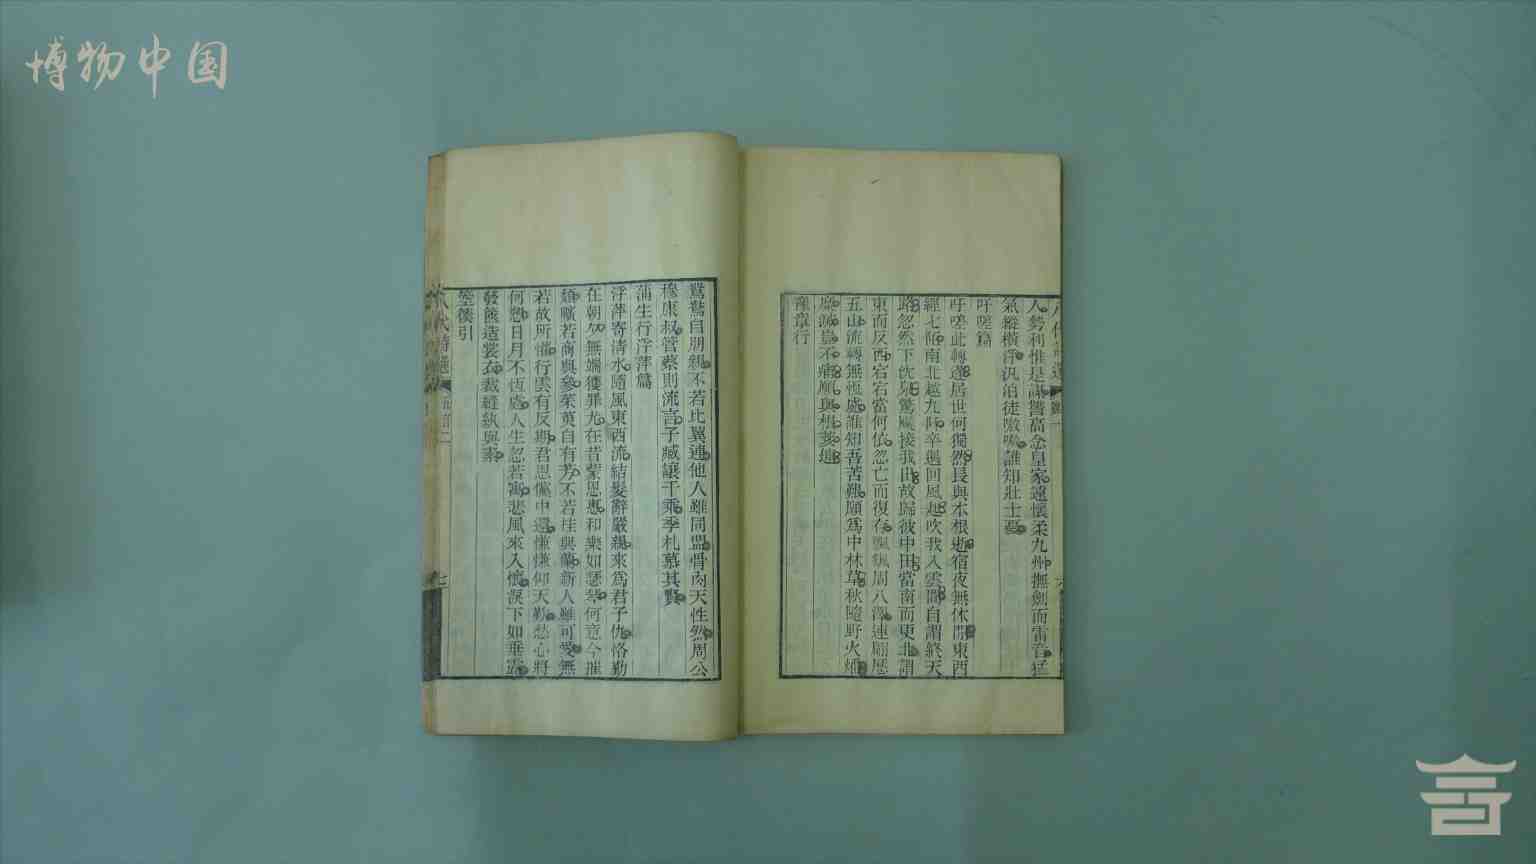 博物中国
人勢利惟是謀讐高念皇家遠懷柔九州撫劍而雷音猛
氣縱橫浮汎泊徒嗷嗷誰知壯士憂
吁嗟篇
吁嗟此轉蓬居世何獨然長與本根逝宿夜無休閒東西
經七陌南北越九阡卒遇回風起吹我入雲閒自謂終天
路忽然下沈泉驚飇接我出故歸彼中田當南而更北謂
東而反西宕宕當何依忽亡而復存飄飄周八澤連翩歷
五山流轉無恆處誰知吾苦艱願爲中林草秋隨野火燔
糜滅豈不痛願與根荄連
豫章行
鴛鴦自朋親不若比翼連他人雖同盟骨肉天性然周公
穆康叔管蔡則流言子臧讓千乘季札慕其賢
蒲生行浮萍篇
浮萍寄清水隨風東西流結髮辭嚴親來爲君子仇恪勤
在朝夕無端獲罪尤在昔蒙恩惠和樂如瑟琴何意今摧
頹曠若商與參茱萸自有芳不若桂與蘭新人雖可愛無
若故所懽行雲有反期君恩儻中還慊慊仰天歎愁心將
何愬日月不恆處人生忽若寓悲風來入懷淚下如垂露
發篋造裳衣裁縫紈與素
箜篌引
八代詩選
七